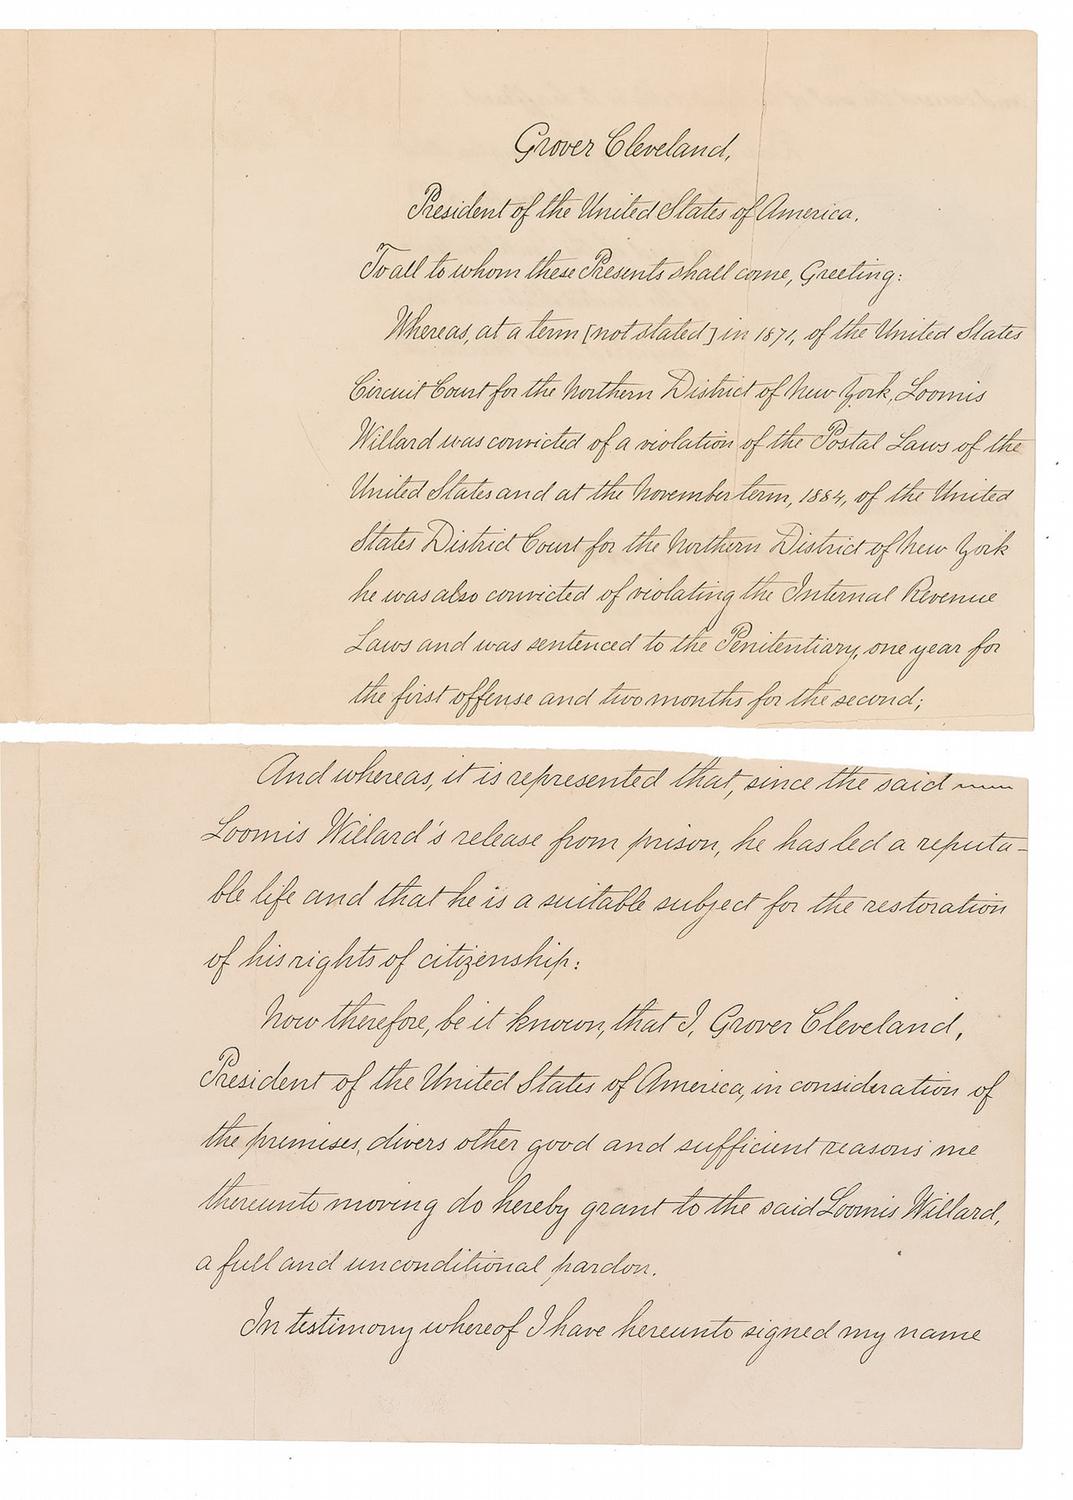 Grover Cleveland,
President of the United States of America.
To all to whom these Presents shall come, Greeting:
Whereas, at a term [not stated] in 1871, of the United States
Circuit Court for the Northern District of New York, Loomis
Willard was convicted of a violation of the Postal Laws of the
United States and at the November term, 1884, of the United
States District Court for the Northern District of New York
he was also convicted of violating the Internal Revenue
Laws and was sentenced to the Penitentiary, one year for
the first offense and two months for the second;
And whereas, it is represented that, since the said
Loomis Willard's release from prison, he has led a reputa-
ble life and that he is a suitable subject for the restoration
of his rights of citizenship:
Now therefore, be it known, that I, Grover Cleveland,
President of the United States of America, in consideration of
the premises, divers other good and sufficient reasons me
thereunto moving do hereby grant to the said Loomis Willard,
a full and unconditional pardon.
In testimony whereof I have hereunto signed my name